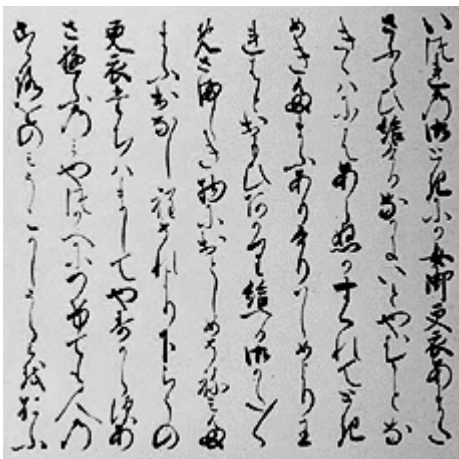 いつれの御時にか女御更衣あまた
さふらひ給けるなかにいとやむことな
きゝはにはあらぬかすくれてとき
めきたまふありけりはしめよりわ
れはとおもひあかり給へる御かた〱
めさましき物におとしめそねみた
まふおなしほとそれより下らうの
更衣たちはましてやすからすあ
さゆふのみやつかへにつけても人の
こゝろをのみうこかしうらみをおふ